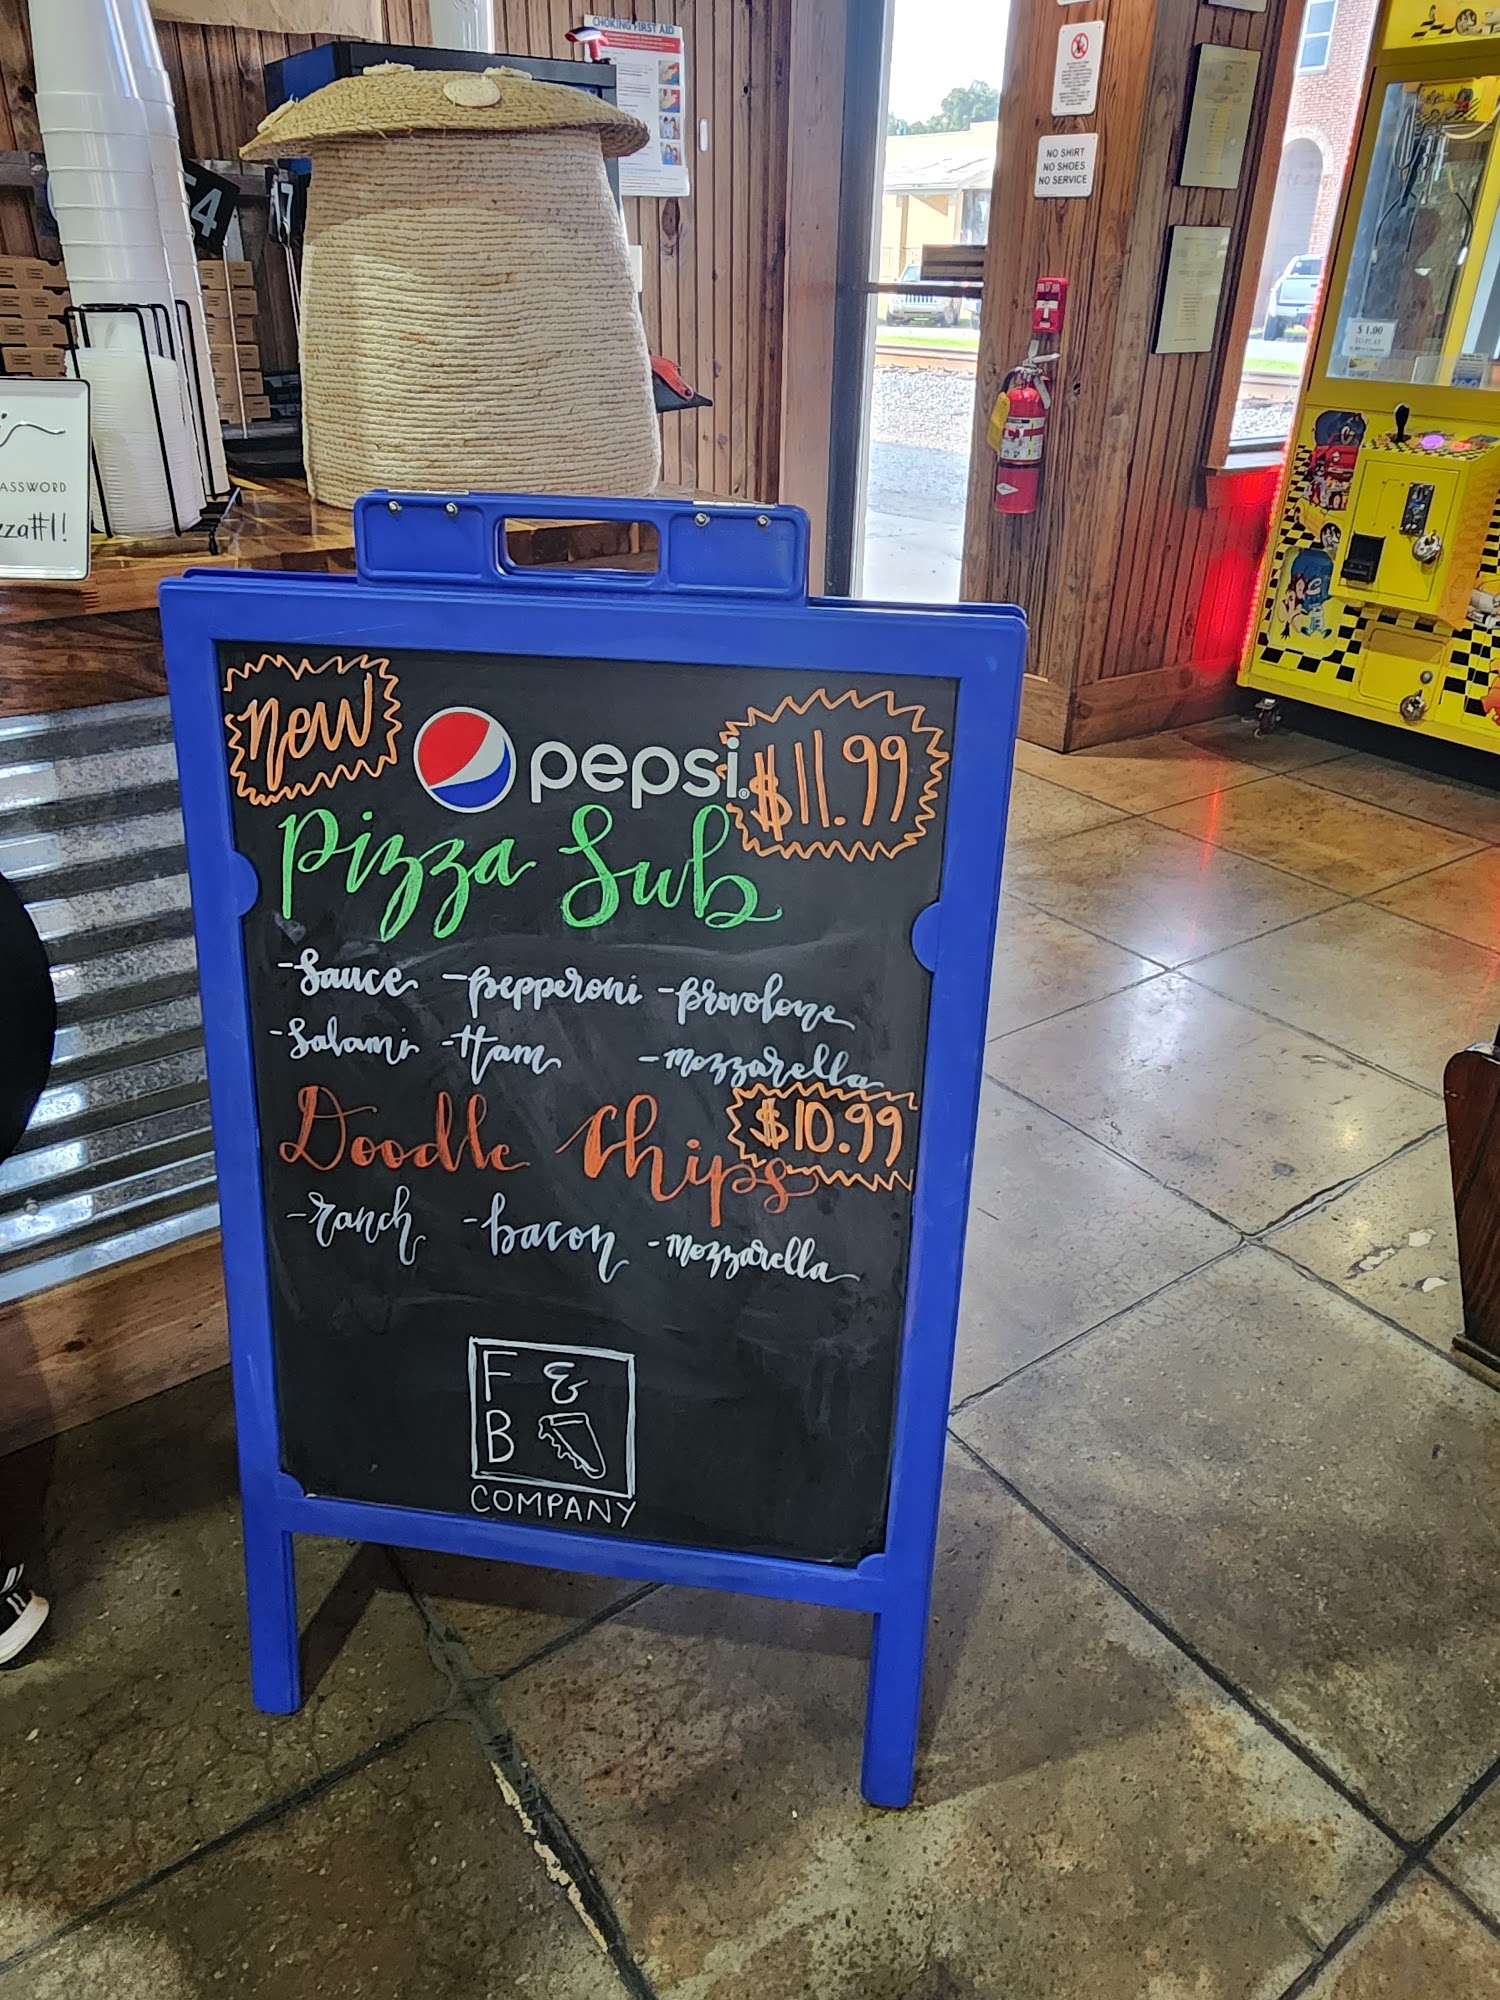 CHOKING FIRST AID
54
17
NO SHIRT
NO SHOES
NO SERVICE
$1.00
TO PLAY
ASSWORD
zza#1!
new
pepsi
$11.99
Pizza Sub
-Sauce -pepperoni -provolone
-Salami -Ham -mozzarella
Doodle Chips
$10.99
-ranch -bacon -mozzarella
F &
B
COMPANY